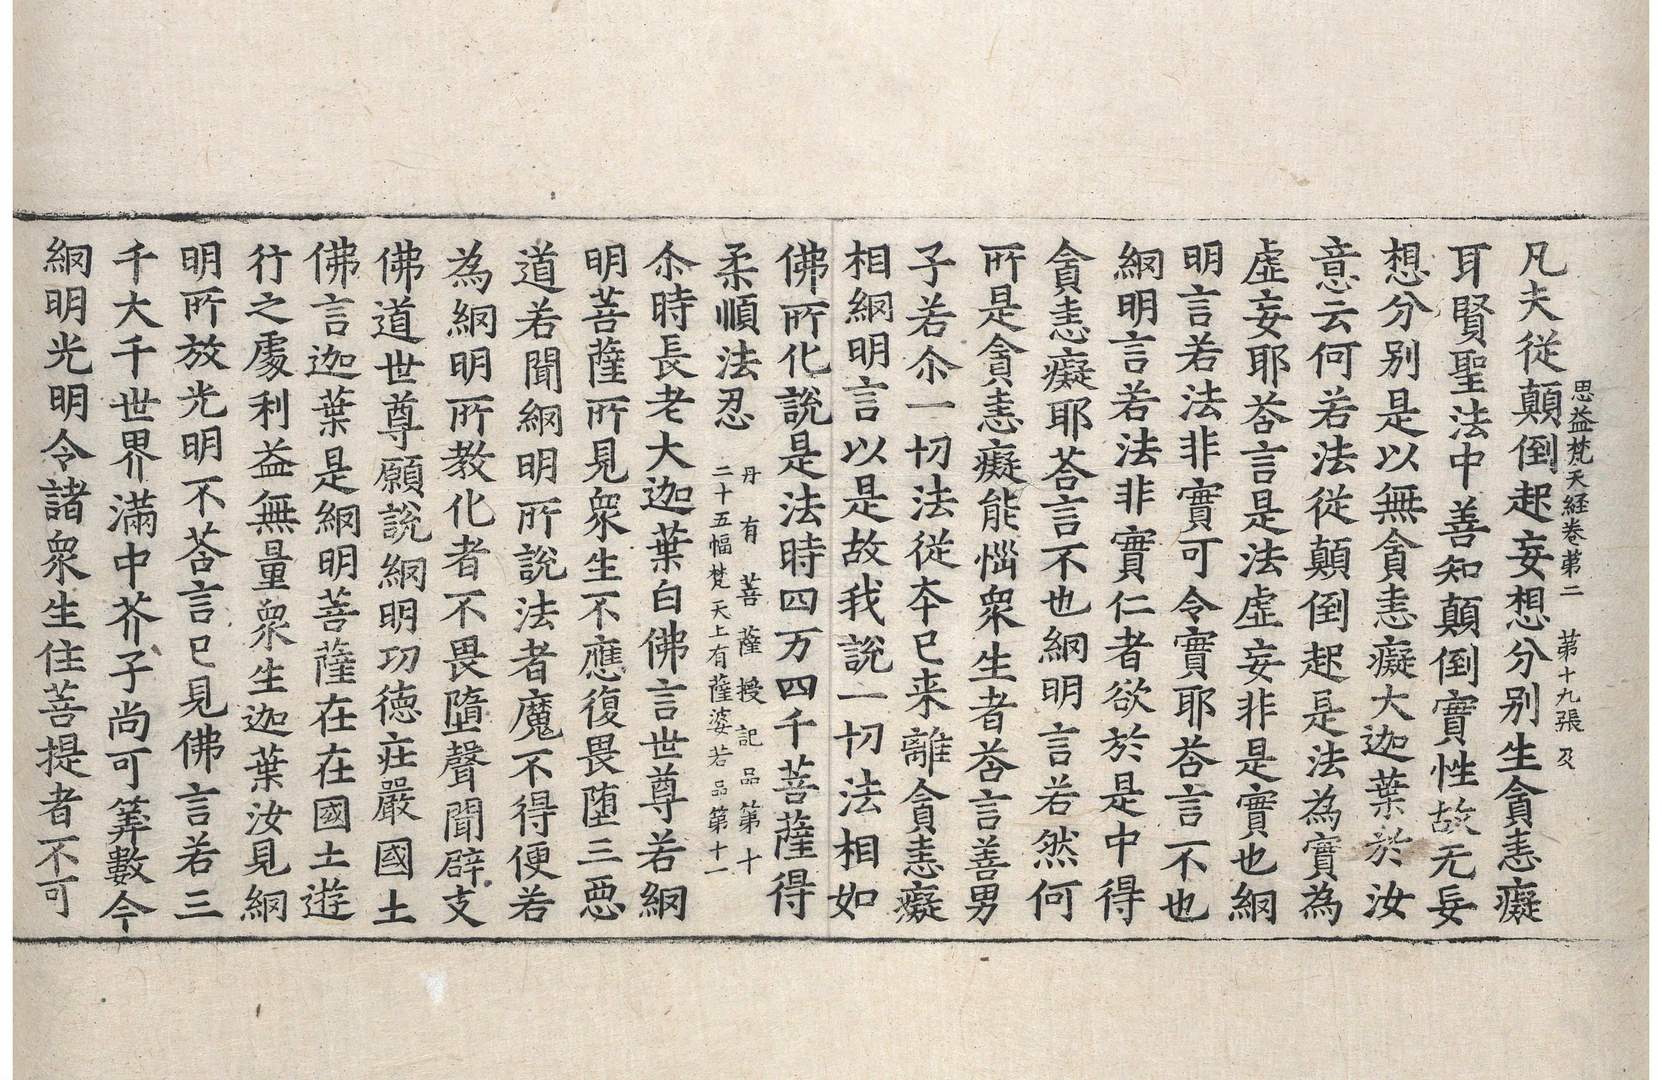 思益梵天経卷苐二　苐十九張　及
凡夫従顛倒起妄想分别生貪恚癡
耳賢聖法中善知顛倒實性故无妄
想分别是以無貪恚癡大迦葉於汝
意云何若法従顛倒起是法為實為
虛妄耶荅言是法虛妄非是實也網
明言若法非實可令實耶荅言不也
網明言若法非實仁者欲於是中得
貪恚癡耶荅言不也網明言若然何
所是貪恚癡能惱衆生者荅言善男
子若尒一切法従夲已来離貪恚癡
相網明言以是故我說一切法相如
佛所化說是法時四万四千菩薩得
柔順法忍
丹有菩薩授記品第十
二十五幅梵天上有薩婆若品第十一
尒時長老大迦葉白佛言世尊若網
明菩薩所見衆生不應復畏堕三惡
道若聞網明所說法者魔不得便若
為網明所教化者不畏墮聲聞辟支
佛道世尊願說網明功德莊嚴國土
佛言迦葉是網明菩薩在在國土遊
行之處利益無量衆生迦葉汝見網
明所放光明不荅言已見佛言若三
千大千世界滿中芥子尚可筭數今
網明光明令諸衆生住菩提者不可